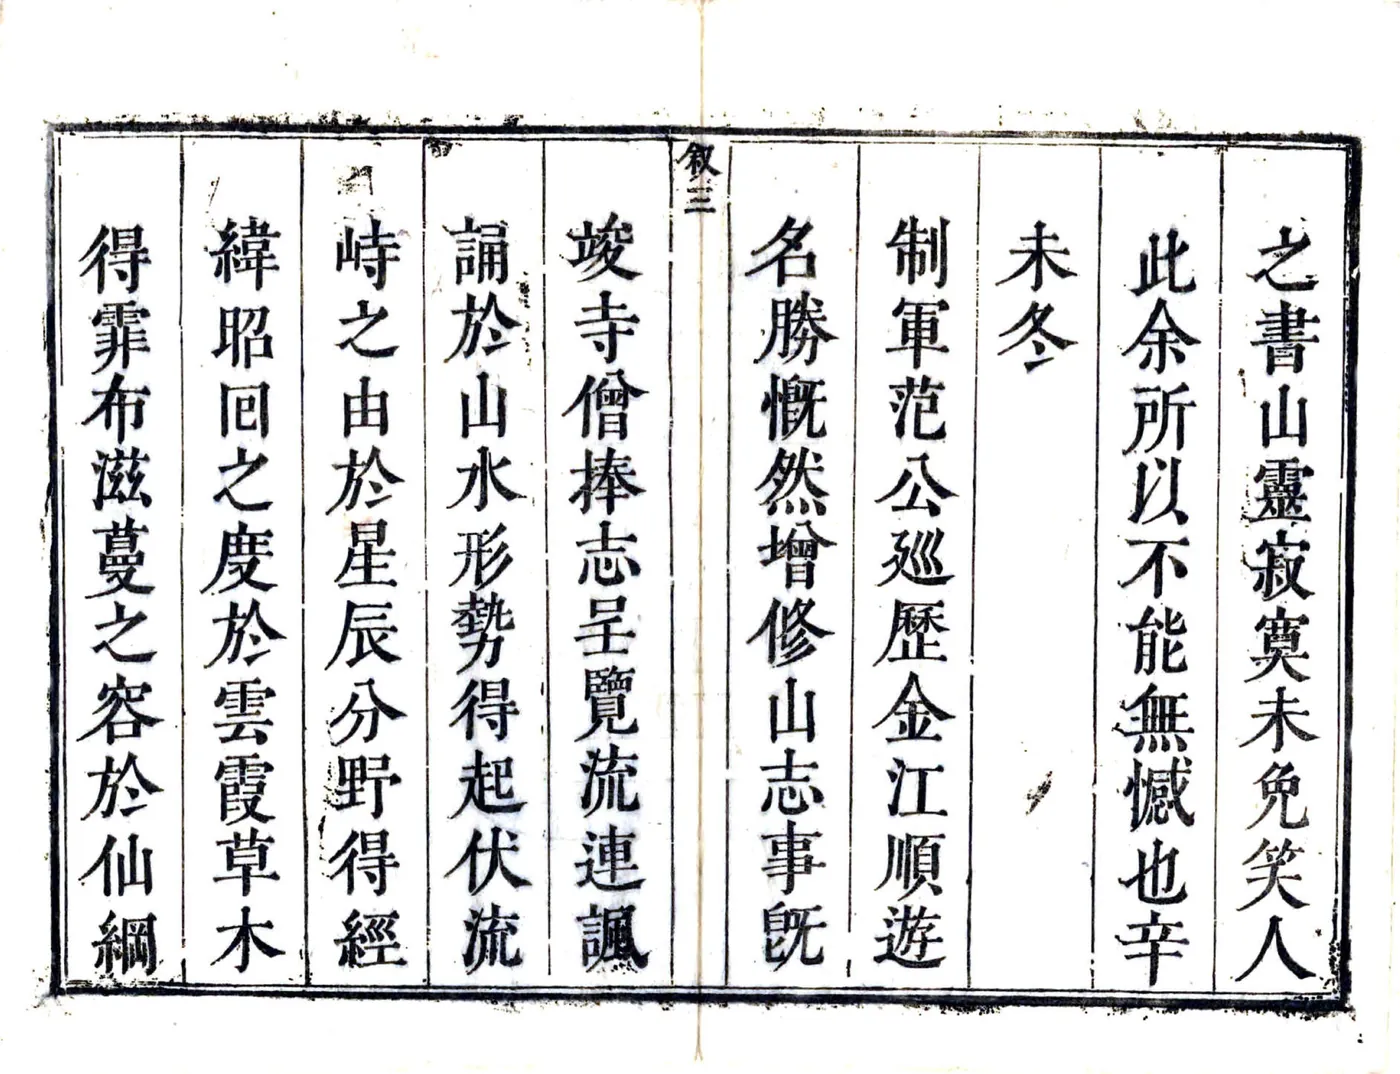 之書山靈寂寞未免笑人
此余所以不能無憾也辛
未冬
制軍范公廵歷金江順遊
名勝慨然增修山志事旣
叙三
竣寺僧捧志呈覽流連諷
誦於山水形勢得起伏流
峙之由於星辰分野得經
緯昭囘之度於雲霞草木
得霏布滋蔓之容於仙綱